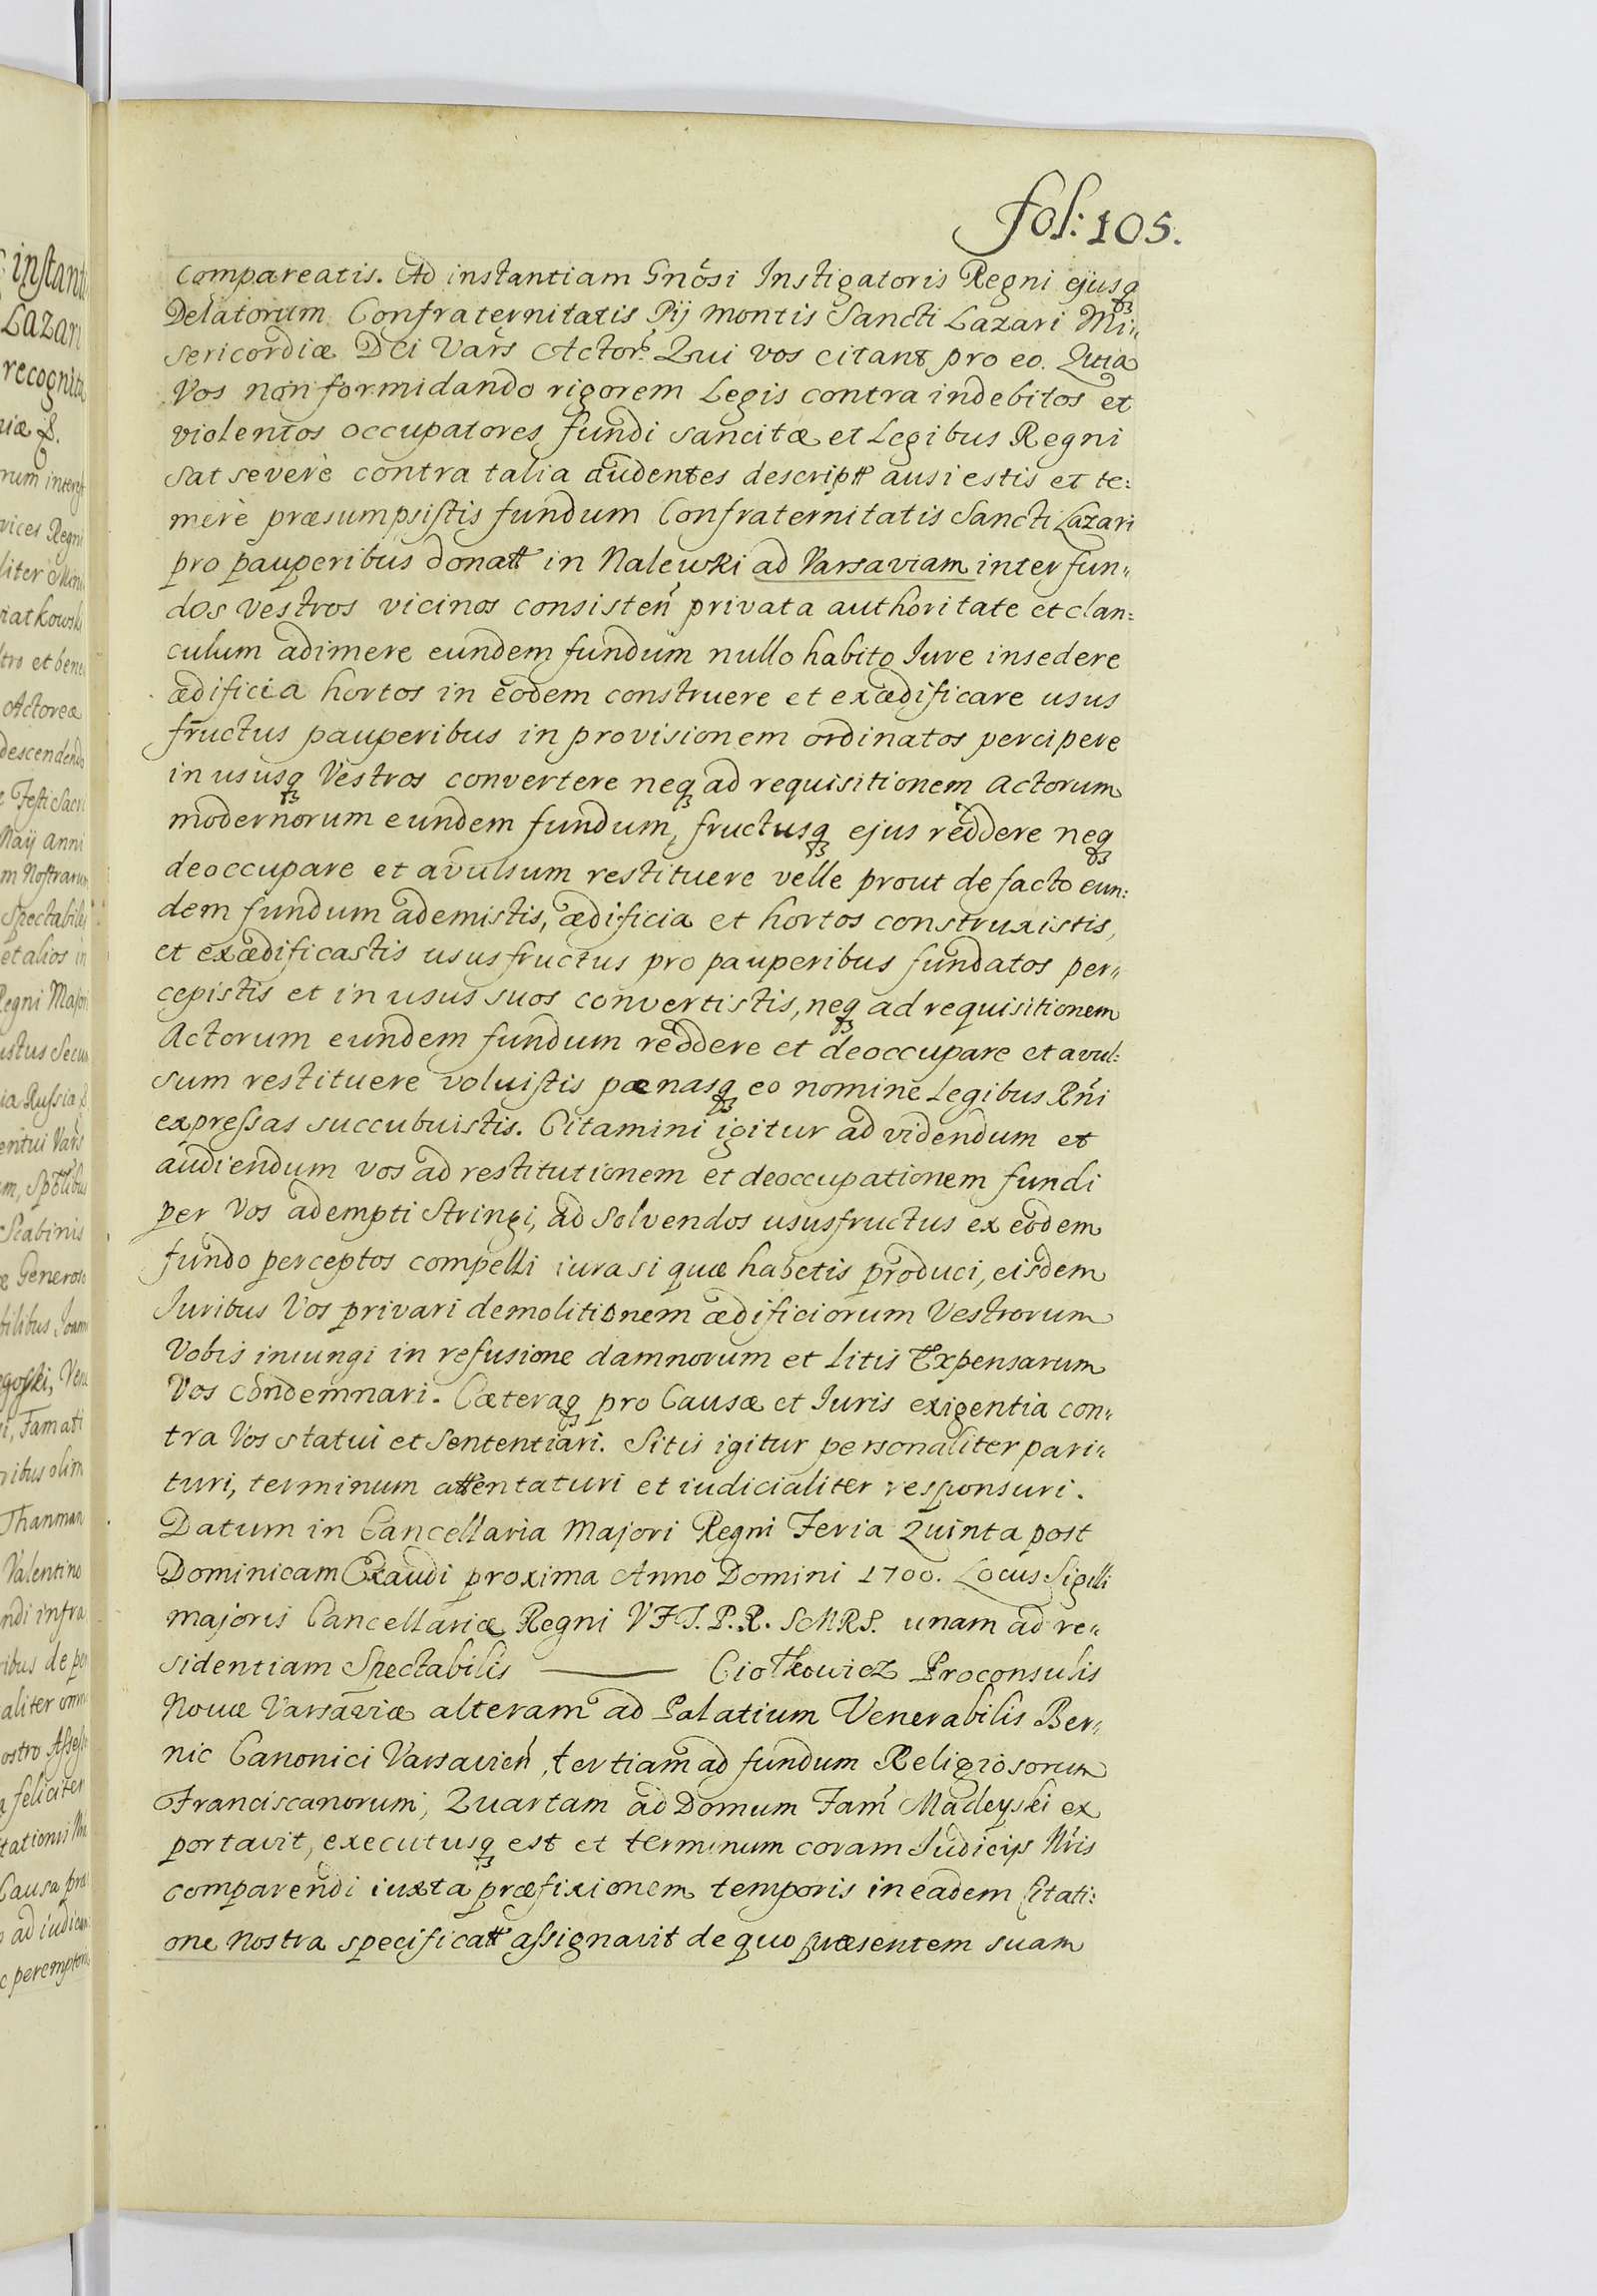 fol: 105.
compareatis. Ad instantiam Gnõsi Instigatoris Regni ejusq3
Delatorum Confraternitatis Pij montis Sancti Lazari Mi„
sericordiæ Dei Vars Actor. Qui vos citant pro eo. Quia
Vos non formidando rigorem Legis contra indebitos et
violentos occupatores fundi sancitæ et Legibus Regni
sat severè contra talia audentes descriptt ausi estis et te:
merè præsumpsistis fundum Confraternitatis Sancti Lazari
pro pauperibus donatt in Nalewki ad Varsaviam inter fun„
dos vestros vicinos consisteñ privata authoritate et clan:
culum adimere eundem fundum nullo habito Iure insedere
ædificia hortos in eodem construere et exædificare usus
fructus pauperibus in provisionem ordinatos percipere
in ususq3 Vestros convertere neq3 ad requisitionem Actorum
modernorum eundem fundum, fructusq3 ejus reddere neq3
deoccupare et avulsum restituere velle prout de facto eun:
dem fundum ademistis, ædificia et hortos construxistis,
et exædificastis ususfructus pro pauperibus fundatos per„
cepistis et in usus suos convertistis, neq3 ad requisitionem
Actorum eundem fundum reddere et deoccupare et avul:
sum restituere voluistis pænasq3 eo nomine Legibus Rñi
expressas succubuistis. Citamini igitur ad videndum et
audiendum vos ad restitutionem et deoccupationem fundi
per Vos adempti stringi, ad solvendos ususfructus ex eodem
fundo perceptos compelli iura si quæ habetis produci, eisdem
Iuribus Vos privari demolitionem ædificiorum Vestrorum
Vobis iniungi in refusione damnorum et Litis Expensarum
Vos condemnari. Cæteraq3 pro Causæ et Iuris exigentia con„
tra Vos statui et sententiari. Sitis igitur personaliter pari„
turi, terminum attentaturi et iudicialiter responsuri.
Datum in Cancellaria Majori Regni Feria Quinta post
Dominicam Exaudi proxima Anno Domini 1700. Locus Sigilli
majoris Cancellariæ Regni VJT. P. R. SMRS. unam ad re„
sidentiam Spectabilis ——— Ciotkowicz Proconsulis
Novæ Varsaviæ alteram ad Palatium Venerabilis Ber„
nic Canonici Varsavieñ, tertiam ad fundum Religiosorum
Franciscanorum, Quartam ad Domum Fam Madeyski ex
portavit, executusq3 est et terminum coram Iudicijs Nris
comparendi iuxta præfixionem temporis in eadem Citati:
one Nostra specificatt assignavit de quo præsentem suam